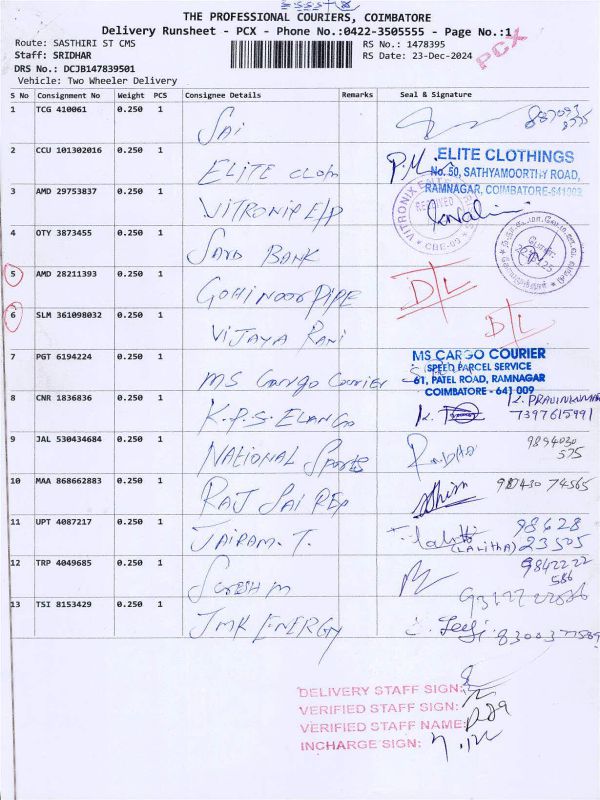 THE PROFESSIONAL COURIERS, COIMBATORE
Delivery Runsheet - PCX - Phone No.:0422-3505555 - Page No.:1
PCX
Route: SASTHIRI ST CMS
RS No.: 1478395
Staff: SRIDHAR
RS Date: 23-Dec-2024
DRS No.: DCJB147839501
Vehicle: Two Wheeler Delivery
S No Consignment No Weight PCS Consignee Details Remarks Seal & Signature
1 TCG 410061 0.250 1 SAI
2 CCU 101302016 0.250 1 ELITE CLOTH
ELITE CLOTHINGS
No. 50, SATHYAMOORTHY ROAD,
RAMNAGAR, COIMBATORE-641009
3 AMD 29753837 0.250 1 VITRONIX E/P
VITRONIX
RECEIVED
CBE-09
4 OTY 3873455 0.250 1 BANK
5 AMD 28211393 0.250 1 GOHINOOR PIPE D/L
6 SLM 361098032 0.250 1 VIJAYA RANI D/L
7 PGT 6194224 0.250 1 MS Cargo Courier
MS CARGO COURIER
SPEED PARCEL SERVICE
61, PATEL ROAD, RAMNAGAR
COIMBATORE - 641 009
8 CNR 1836836 0.250 1 K.P.S. ELANGO K. PRAVINKUMAR
7397615991
9 JAL 530434684 0.250 1 NATIONAL Sports 9894030
575
10 MAA 868662883 0.250 1 RAJ SAI REP 987430 74565
11 UPT 4087217 0.250 1 JAIRAM. T. Lalitha (LALITHA) 98628
23505
12 TRP 4049685 0.250 1 SURESH M 9842222
586
13 TSI 8153429 0.250 1 JMK ENERGY
DELIVERY STAFF SIGN:
VERIFIED STAFF SIGN:
VERIFIED STAFF NAME:
INCHARGE SIGN: